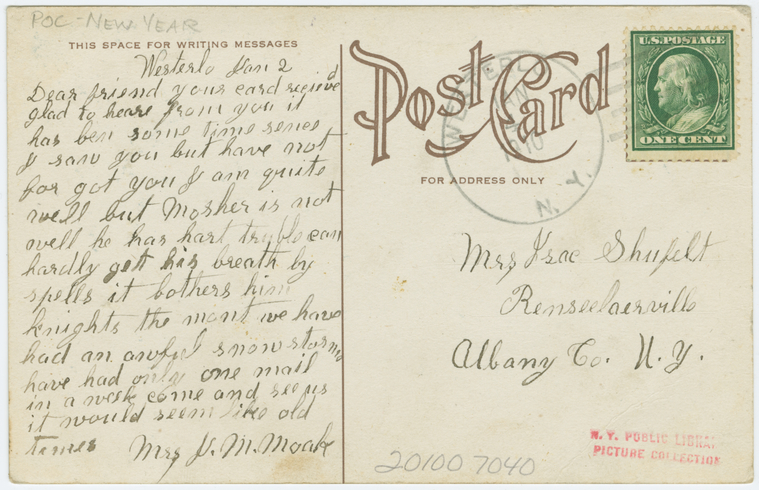 POC - NEW YEAR
THIS SPACE FOR WRITING MESSAGES
Westerlo Jan 2
Dear friend your card recieved
glad to heare from you it
has ben some time senes
I saw you but have not
for got you I am quite
well but Mosher is not
well he has hart tryble can
hardly get his breath by
spells it bothers him
knights the most we have
had an awful snow storm
have had only one mail
in a week come and see us
it would seem like old
times Mrs J. M. Moak
Post Card
FOR ADDRESS ONLY
WESTERLO
1910
N. Y.
U.S. POSTAGE
ONE CENT
Mrs Irac Shufelt
Renseelaerville
Albany Co. N. Y.
N. Y. PUBLIC LIBRARY
PICTURE COLLECTION
20100 7040